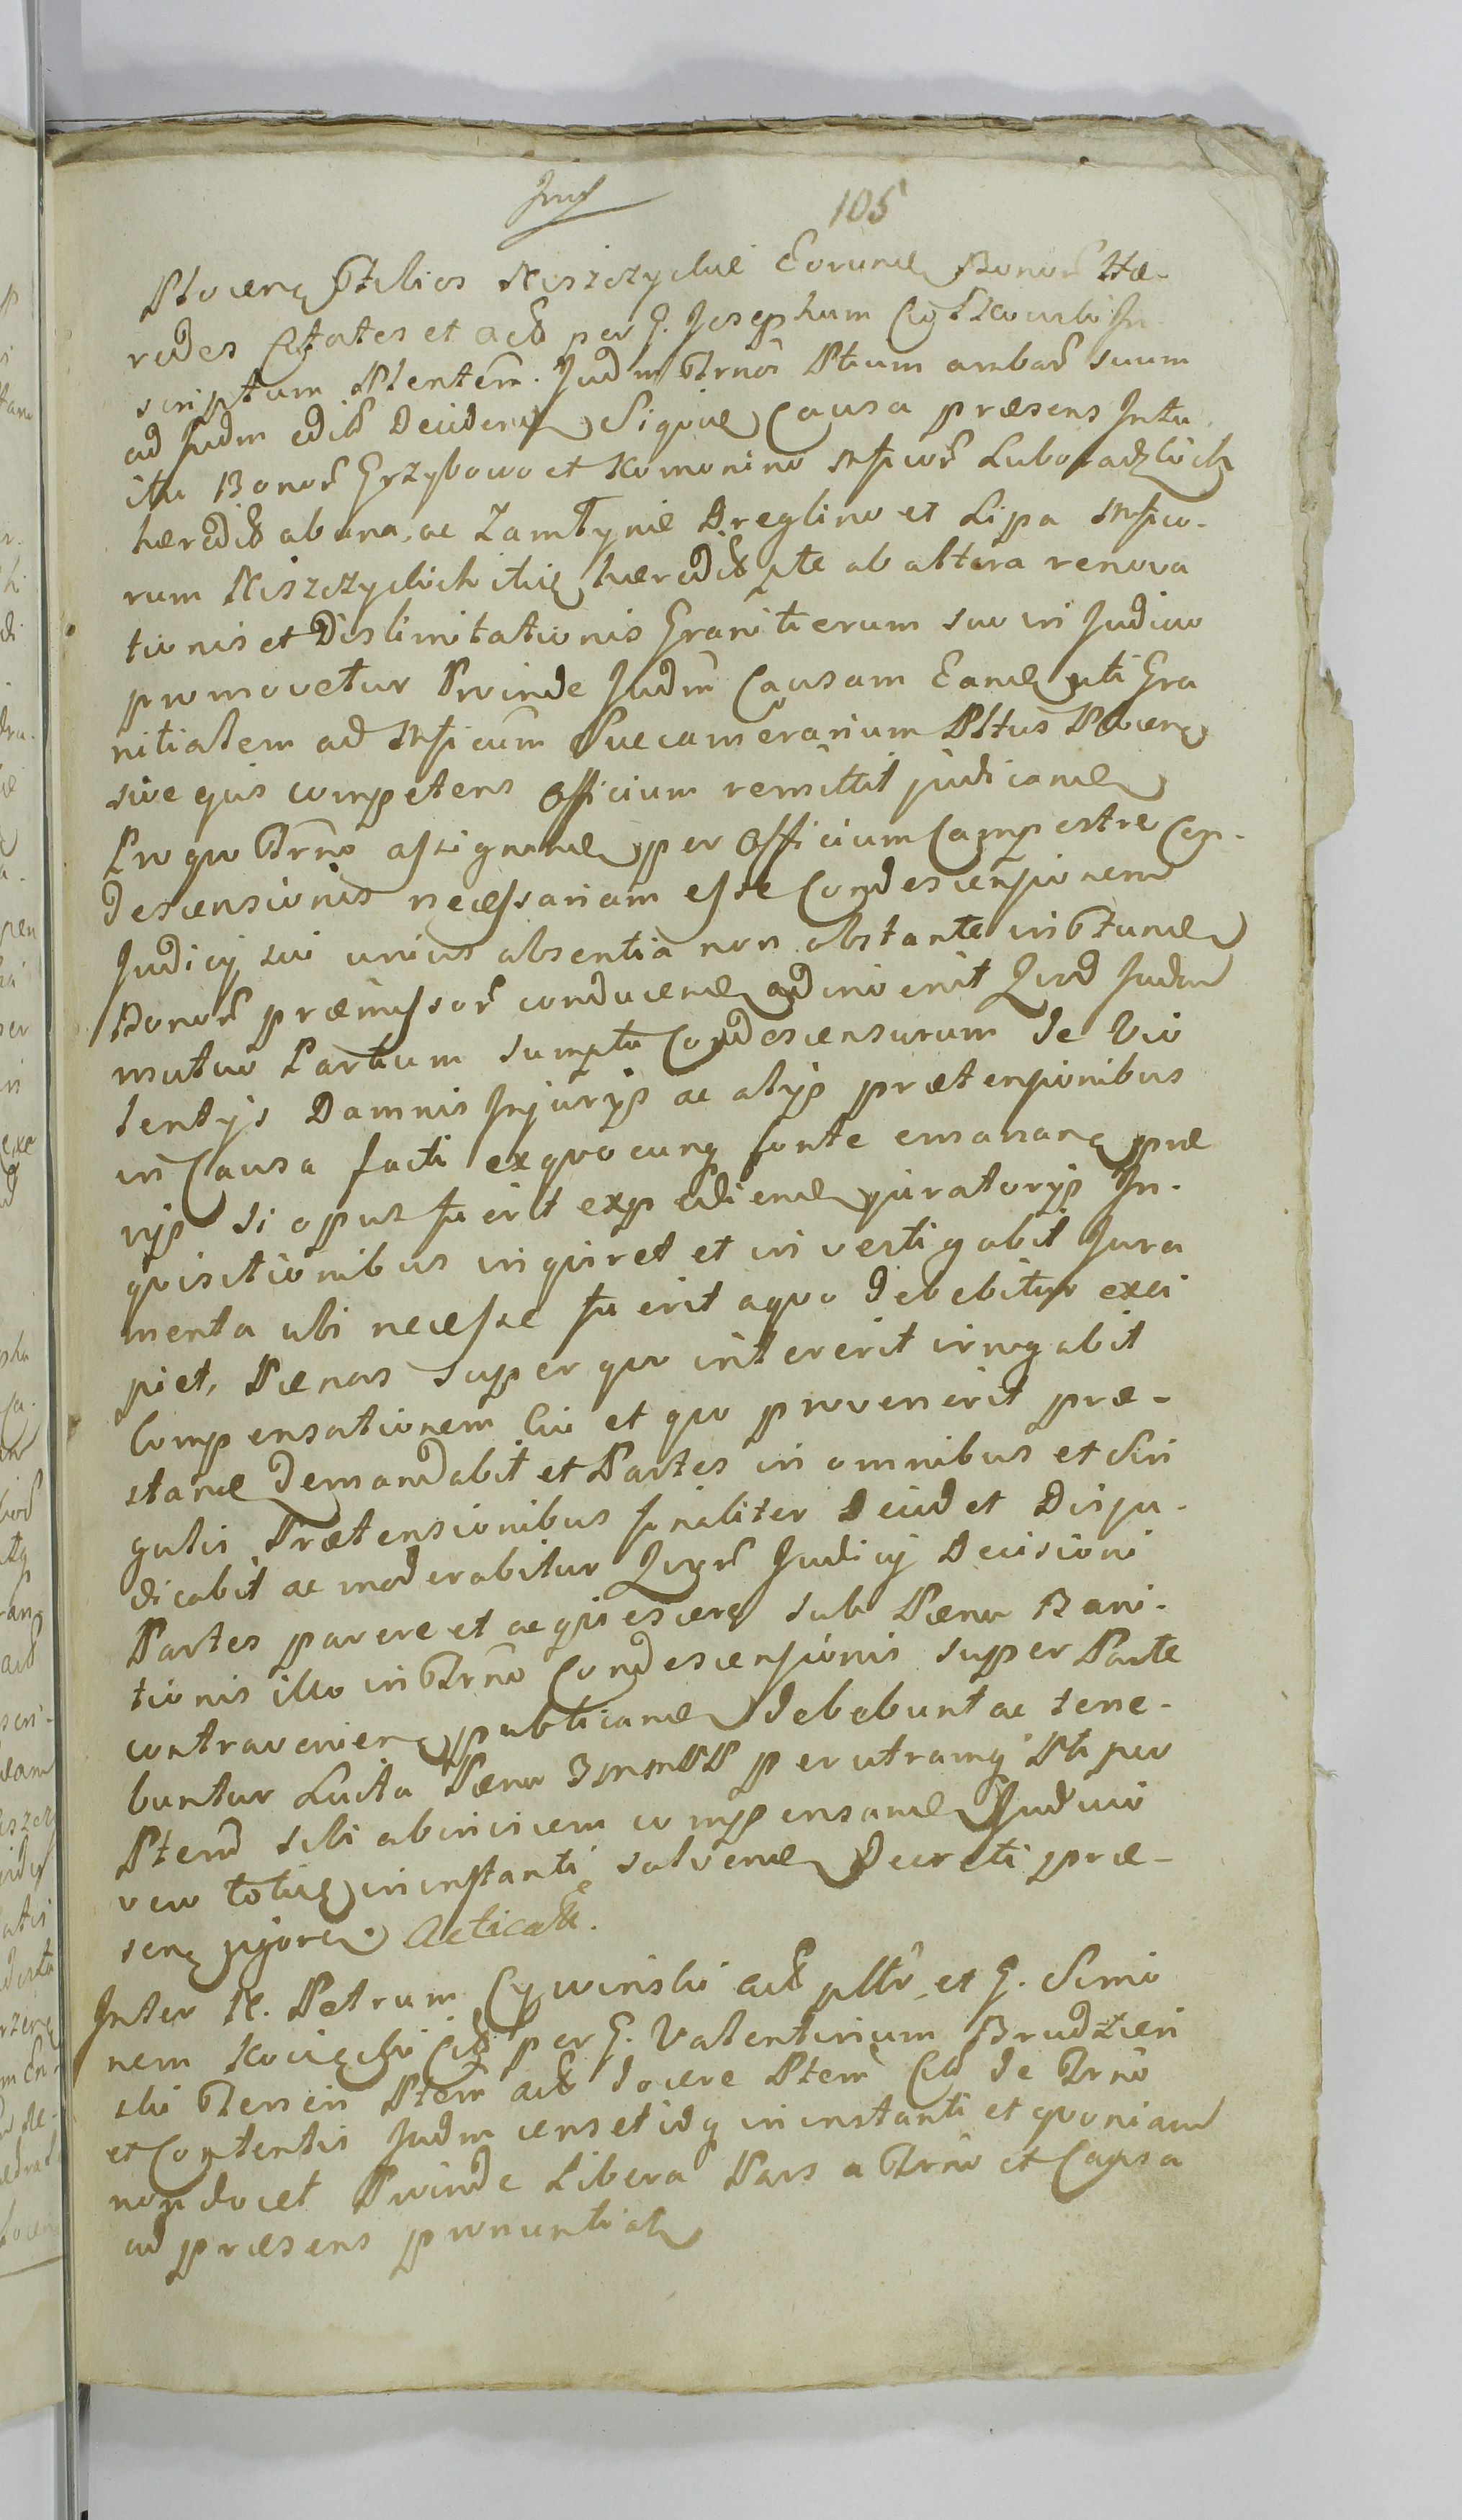 105
Plocen Filios Niszczyckie Eorund Bonor Hæ-
redes Cttates et actt per G. Josephum Cyttkowski In
scriptum Ptentem. Judm Trno Ptium ambar suum
ad Judm edict Decidend Siquid Causa præsens Intu
itu Bonor Grzybowo et Komonino Mfcor Luboradzkich
hæredit ab una, ac Zamtynie Dreglino et Lipa Mfco-
rum Niszczyckich itid hæredit pte ab altera renova
tionis et Dislimitationis Granitierum suo in Judicio
promovetur Proinde Judm Causam Eand uti Gra
nitialem ad Mfcum Succamerarium Pltus Plocen
sive ejus competens Officium remittit judicand
Pro quo Trno assignand per Officium Campestre Con-
descensionis necessariam esse Condescensionem
Judicij sui unius absentia non obstante in Fund
Bonor præmissor conducend adinvenit Quod Judm
mutuo Partium sumptu Condescensurum de Vio
lentijs Damnis Injurijs ac alijs prætensionibus
in Causa facti ex quocunq fonte emanan præ
vijs si opus fuerit expediend juratorijs In-
quisitionibus inquiret et investigabit Jura
menta ubi necesse fuerit a quo debebitur exci
piet, Pænas super quo intererit irrogabit
Compensationem Cui et quo provenerit præ-
stand demandabit et Partes in omnibus et Sin
gulis Prætensionibus finaliter Decidet Diju-
dicabit ac moderabitur Quor Judicij Decisioni
Partes parere et acquiescere sub Pæna Bani-
tionis illo in Trno Condescensionis super Parte
contravenien publicand debebunt ac tene-
buntur Lucta Pæna 3 mmPP per utramq Pti per
Ptem sibi abinvicem compensand Judicio
vero totid in instanti solvend Decreti præ-
sen vigore Acticatt.
Inter N. Petrum Cywinski actt et G. Simo
nem Kocięcki Citt per G. Valentinum Brudzien
ski Terren Ptem actt docere Ptem Citt de Trno
et Contentis Judm censet idq in instanti et quoniam
non docet Proinde Libera Pars a Trno et Causa
ad præsens pronuntiat